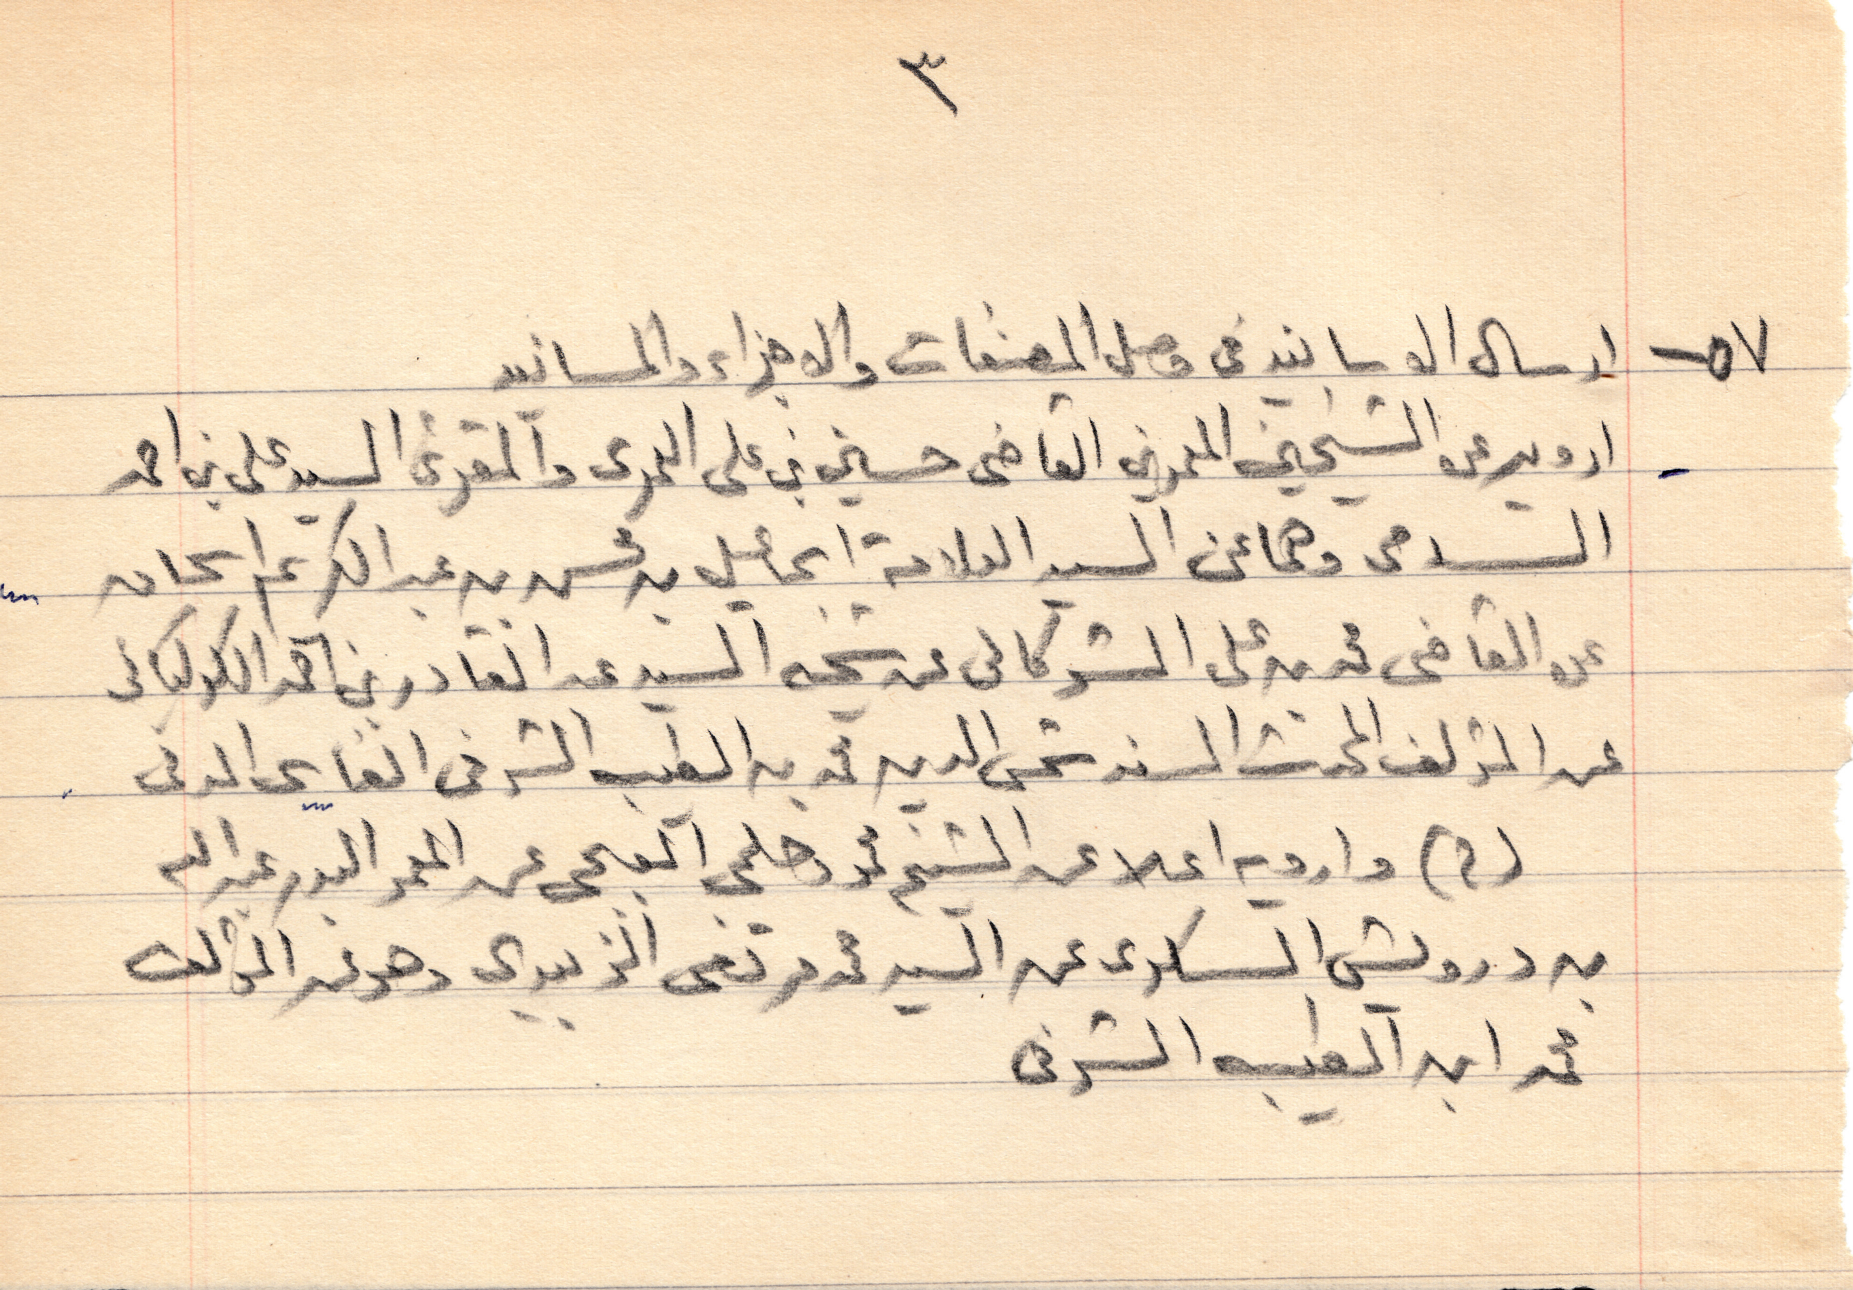 ٣
٥٧- ارسال الاسانيد في وصل المصنفات والاجزاء والمسانيد
ارويه عن الشيخين المعمرين القاضى حسين بن على العمرى والمقرئ السيد على بن احمد
السدمى وهما عن السيد العلامة اسماعيل بن محسن بن عبد الكريم اسحاق
عن القاضى محمد بن على الشوكانى عن شيخه السيد عبد القادر بن احمد الكوكبانى
عن المؤلف المحدث المسند شمس الدين محمد بن الطيب الشرفى الفاسى المدنى
(م) وارويه اعلا عن الشيخ محمد العجمى عن المعمر البدر عبد الله
بن درويش السكرى عن السيد محمد مرتضى الزبيدى وهو عن المؤلف
محمد ابن الطيب الشرفى